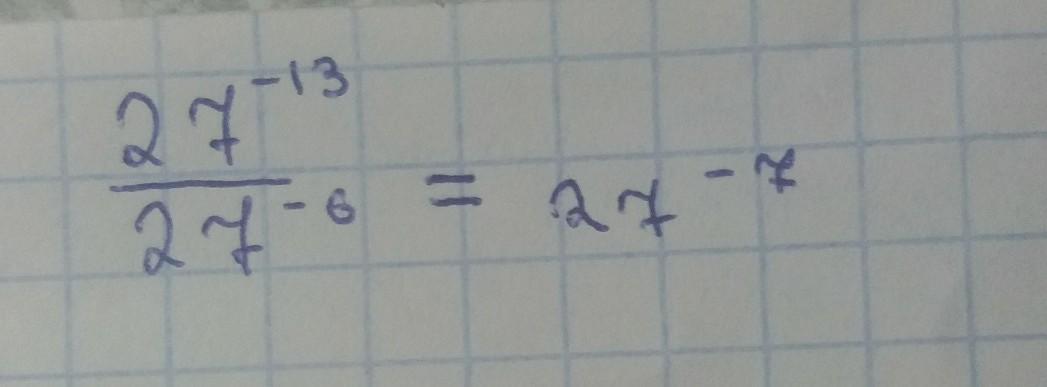 27⁻¹³/27⁻⁶ = 27⁻⁷